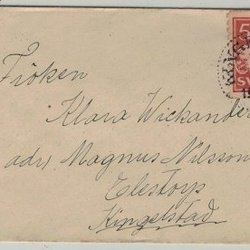 Fröken
Klara Wickander
adr, Magnus Nilsson
Elestorp
Ringelstad
5